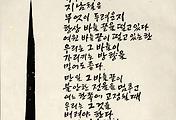 지남철은
무엇이 두려운지
항상 바늘 끝을 떨고 있다.
여윈 바늘 끝이 떨고 있는 한
우리는 그 바늘이
가리키는 방향을
믿어도 좋다.
만일 그 바늘이
불안한 전율을 멈추고
어느 한쪽에 고정될 때
우리는 그것을
버려야 한다.